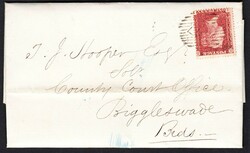 T. J. Hooper Esq
Solr
County Court Office
Biggleswade
Beds